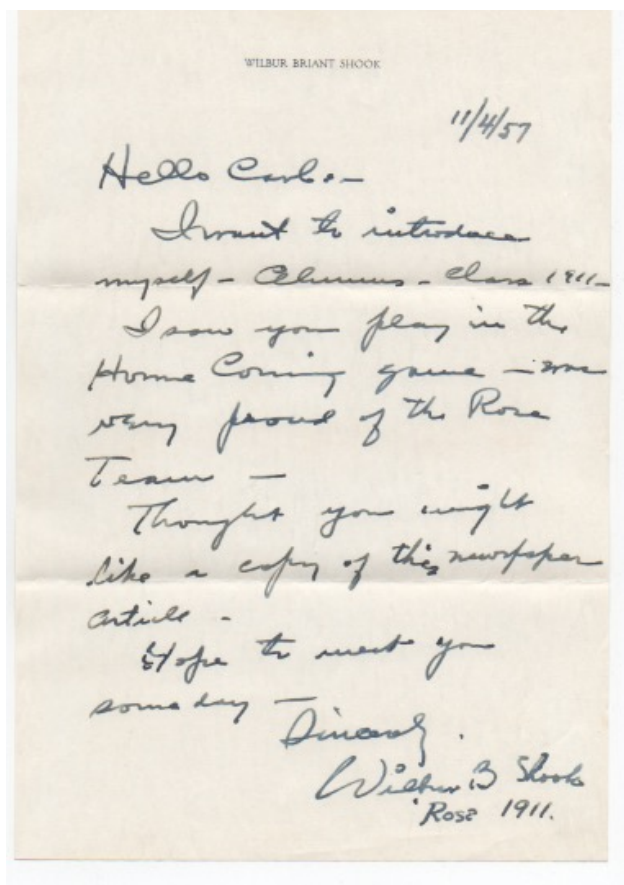 WILBUR BRIANT SHOOK
11/4/57
Hello Carl:-
I want to introduce
myself - Alumnus - Class 1911-
I saw you play in the
Home Coming game - was
very proud of the Rose
Team -
Thought you might
like a copy of this newspaper
article -
Hope to meet you
some day -
Sincerely.
Wilbur B Shook
Rose 1911.